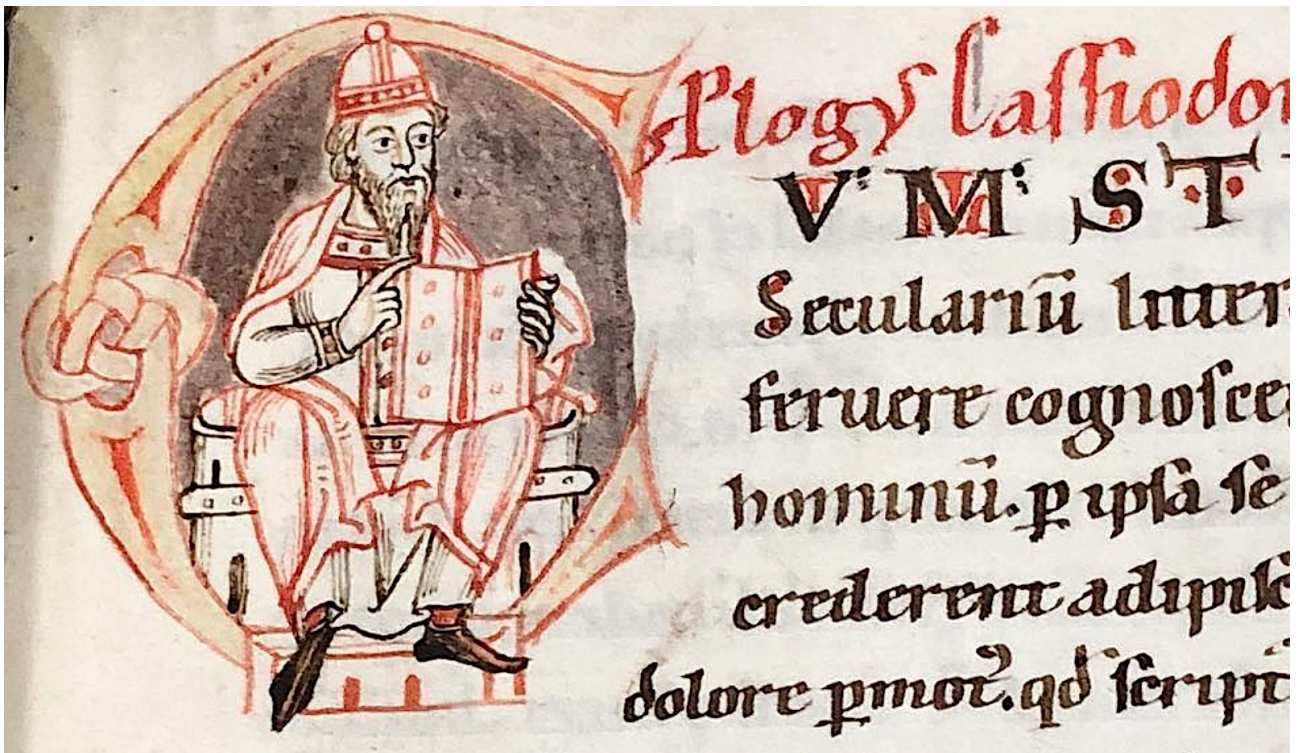 Plogꝰ Cassiodor
CVM ST
Seculariū litter
feruere cognosce
hominū. ꝑ ipsā se
crederent adipisc
dolore ꝑmotꝰ. qđ script